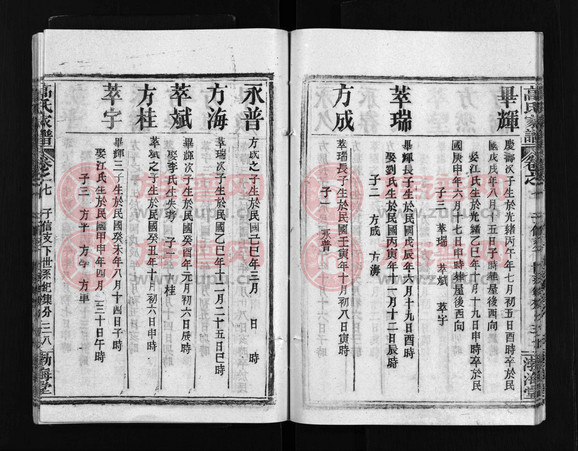 高氏家譜
畢輝
慶壽次子生於光緒丙午年七月初五日酉時卒於民
國戊戌年八月 五日子時 屋後西向
娶江氏生於光緒乙巳年十一月十九日申時卒於民
國庚申年六月十七日申時 屋後西向
子三 萃瑞 萃斌 萃宇
萃瑞
畢輝長子生於民國戊辰年六月十九日酉時
娶劉氏生於民國丙寅年一月十二日辰時
子二 方成 方海
方成
萃瑞長子生於民國壬寅年十月初八日寅時
子一 永普
永普
方成之子生於民國 巳年三月 日 時
方海
萃瑞次子生於民國乙巳年十一月二十五日巳時
萃斌
畢輝次子生於民國癸酉年元月初六日辰時
娶李氏生失考 子一 方桂
方桂
萃斌之子生於民國癸丑年十月初六日申時
萃宇
畢輝三子生於民國癸未年八月十四日子時
娶江氏生於民國甲申年四月二十日午時
子三 方 方 方軍
高氏家譜
卷之十七
子信支下世系紀集分
三八
渤海堂